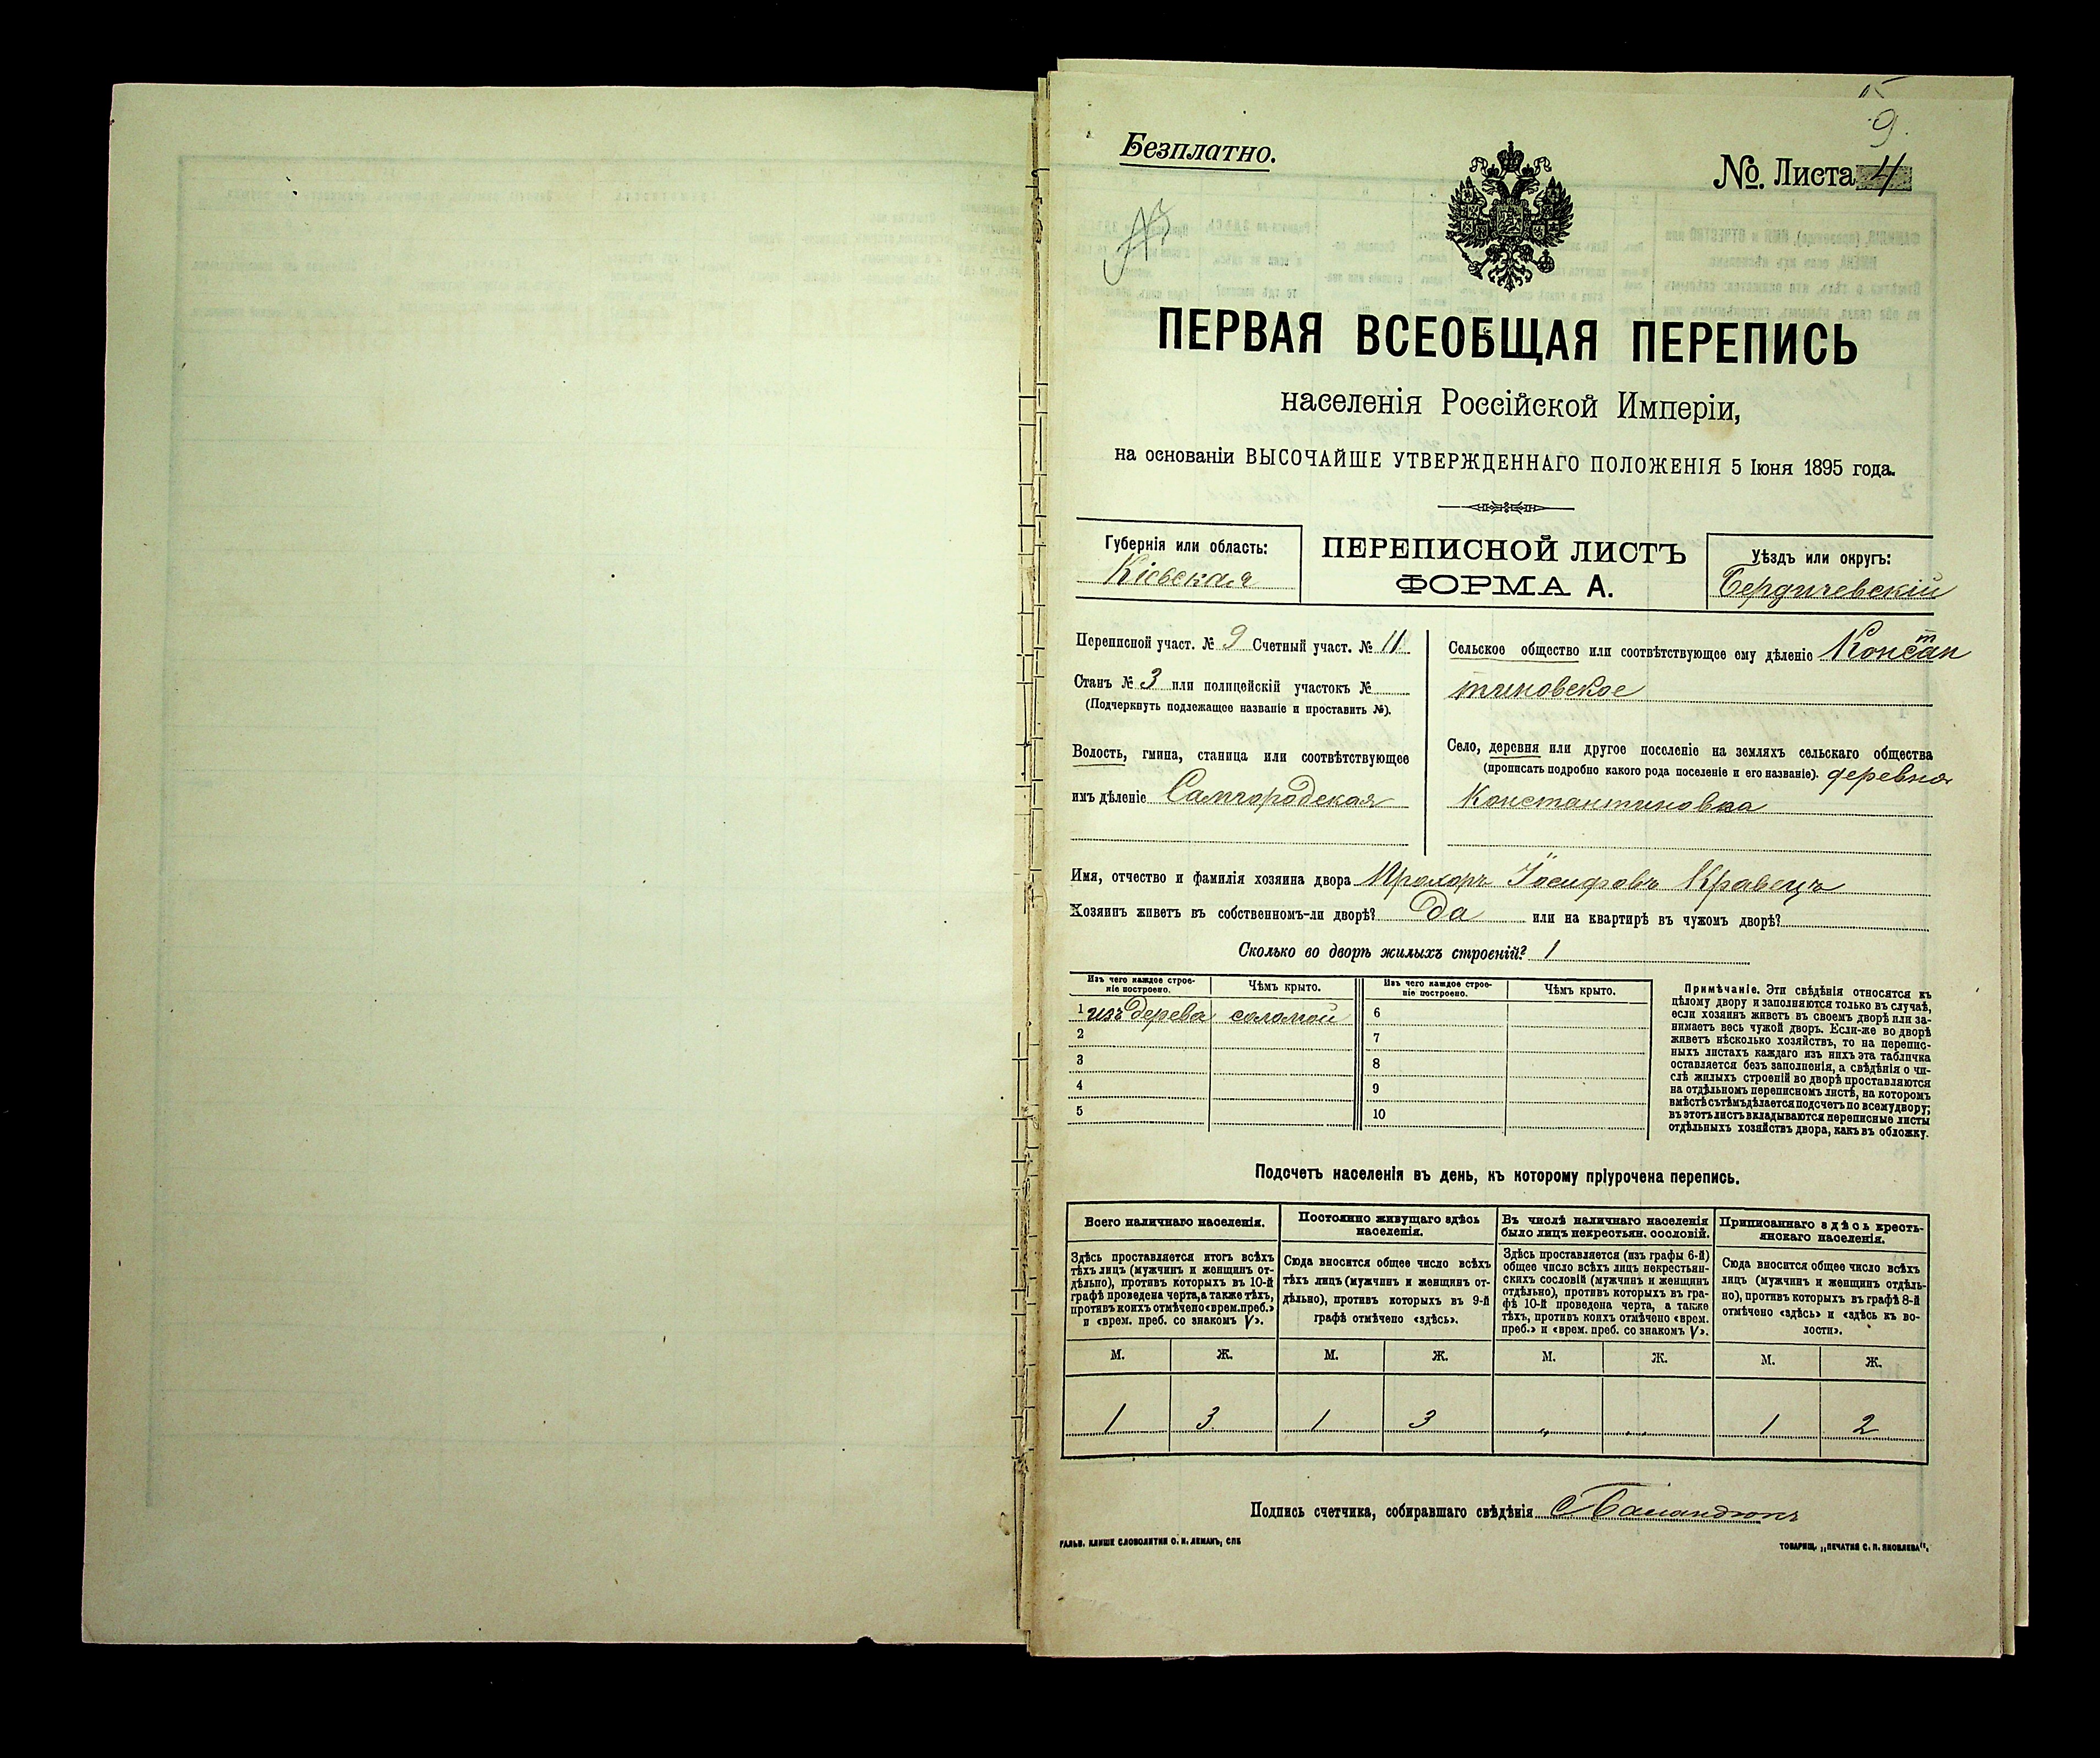 9
Безплатно.
№. Листа 4
ПЕРВАЯ ВСЕОБЩАЯ ПЕРЕПИСЬ
населенія Россійской Имперіи,
на основаніи ВЫСОЧАЙШЕ УТВЕРЖДЕННАГО ПОЛОЖЕНІЯ 5 Іюня 1895 года.
Губернія или область:
Кіевская
ПЕРЕПИСНОЙ ЛИСТЪ
ФОРМА А.
Уѣздъ или округъ:
Бердичевскій
Переписной участ. № 9 Счетный участ. № 11
Станъ № 3 или полицейскій участокъ №
(Подчеркнуть подлежащее названіе и проставить №).
Волость, гмина, станица или соотвѣтствующее
имъ дѣленіе Самгородская
Сельское общество или соотвѣтствующее ему дѣленіе Констан
тиновское
Село, деревня или другое поселеніе на земляхъ сельскаго общества
(прописать подробно какого рода поселеніе и его названіе). деревня
Константиновка
Имя, отчество и фамилія хозяина двора Прохоръ Іосифовъ Кравецъ
Хозяинъ живетъ въ собственномъ-ли дворѣ? Да или на квартирѣ въ чужомъ дворѣ?
Сколько во дворѣ жилыхъ строеній? 1
Изъ чего каждое строе-
ніе построено.
Чѣмъ крыто.
Изъ чего каждое строе-
ніе построено.
Чѣмъ крыто.
1 изъ дерева соломой
2
3
4
5
6
7
8
9
10
Примѣчаніе. Эти свѣдѣнія относятся къ
цѣлому двору и заполняются только въ случаѣ,
если хозяинъ живетъ въ своемъ дворѣ или за-
нимаетъ весь чужой дворъ. Если-же во дворѣ
живетъ нѣсколько хозяйствъ, то на перепис-
ныхъ листахъ каждаго изъ нихъ эта табличка
оставляется безъ заполненія, а свѣдѣнія о чи-
слѣ жилыхъ строеній во дворѣ проставляются
на отдѣльномъ переписномъ листѣ, на которомъ
вмѣстѣ съ тѣмъ дѣлается подсчетъ по всему двору;
въ этотъ листъ вкладываются переписные листы
отдѣльныхъ хозяйствъ двора, какъ въ обложку.
Подсчетъ населенія въ день, къ которому пріурочена перепись.
Всего наличнаго населенія.
Здѣсь проставляется итогъ всѣхъ
тѣхъ лицъ (мужчинъ и женщинъ от-
дѣльно), противъ которыхъ въ 10-й
графѣ проведена черта, а также тѣхъ,
противъ коихъ отмѣчено «врем. преб.»
и «врем. преб. со знакомъ V».
Постоянно живущаго здѣсь
населенія.
Сюда вносится общее число всѣхъ
тѣхъ лицъ (мужчинъ и женщинъ от-
дѣльно), противъ которыхъ въ 9-й
графѣ отмѣчено «здѣсь».
Въ числѣ наличнаго населенія
было лицъ некрестьян. сословій.
Здѣсь проставляется (изъ графы 6-й)
общее число всѣхъ лицъ некрестьян-
скихъ сословій (мужчинъ и женщинъ
отдѣльно), противъ которыхъ въ гра-
фѣ 10-й проведена черта, а также
тѣхъ, противъ коихъ отмѣчено «врем.
преб.» и «врем. преб. со знакомъ V».
Приписаннаго здѣсь кресть-
янскаго населенія.
Сюда вносится общее число всѣхъ
лицъ (мужчинъ и женщинъ отдѣль-
но), противъ которыхъ въ графѣ 8-й
отмѣчено «здѣсь» и «здѣсь къ во-
лости».
М. Ж. М. Ж. М. Ж. М. Ж.
1 3 1 3 „ „ 1 2
Подпись счетчика, собиравшаго свѣдѣнія
ГАЛЬВ. КЛИШЕ СЛОВОЛИТНИ О. И. ЛЕМАНЪ, СПБ
ТОВАРИЩ. „ПЕЧАТНЯ С. П. ЯКОВЛЕВА".